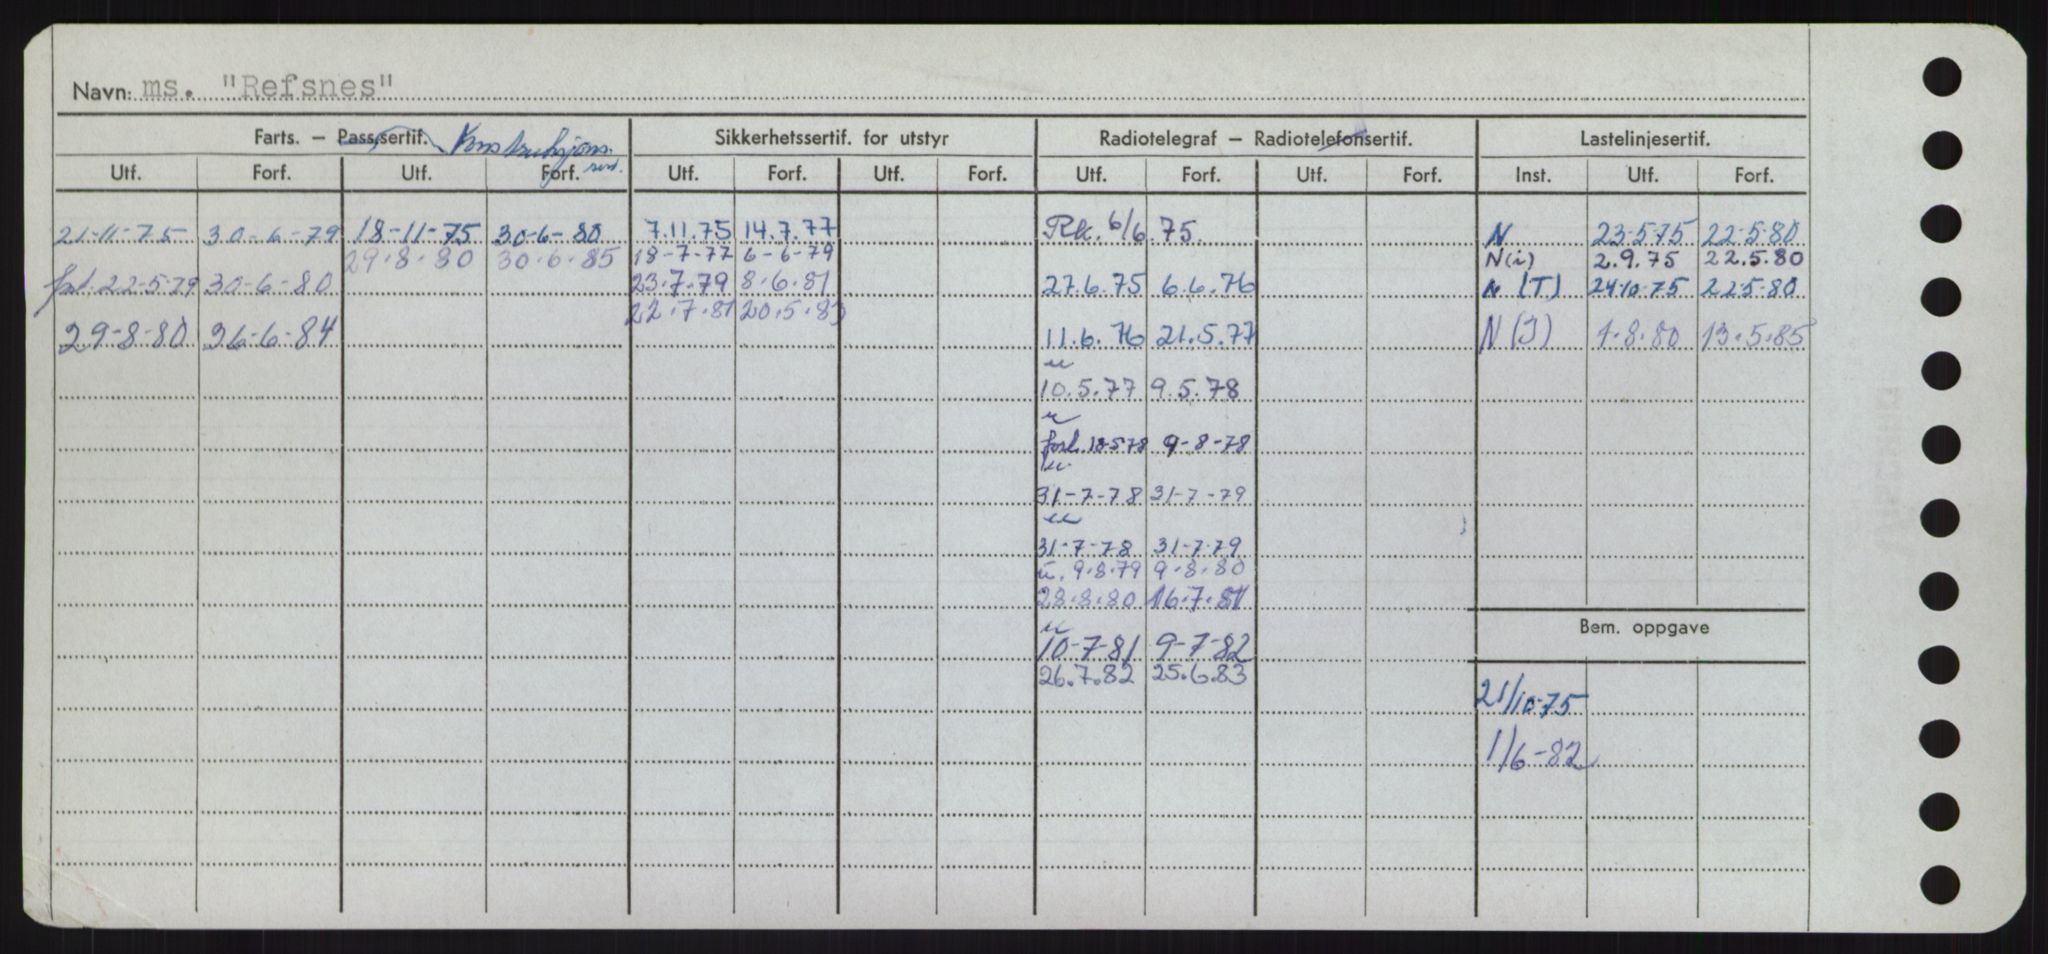 Navn: ms. "Refsnes"
Farts. – Passsertif. Konstruksjons- Sikkerhetssertif. for utstyr Radiotelegraf – Radiotelefonsertif. Lastelinjesertif.
sert.
Utf. Forf. Utf. Forf. Utf. Forf. Utf. Forf. Utf. Forf. Utf. Forf. Inst. Utf. Forf.
21-11-75 30-6-79 18-11-75 30-6-80 7.11.75 14.7.77 Rk. 6/6.75. N 23-5-75 22-5-80
29.8.80 30.6.85 18-7-77 6-6-79 N(i) 2.9.75 22.5.80
forl. 22-5-79 30-6-80 23.7.79 8.6.81 27.6.75 6.6.76 N (T) 24-10-75 22-5-80
22.7.81 20.5.83
29-8-80 36-6-84 11.6.76 21.5.77 N(I) 1.8.80 13.5.85
u
10.5.77 9.5.78
u
forl. 18-5-78 9-8-78
u
31-7-78 31-7-79
u
31-7-78 31-7-79
u. 9.8.79 9.8.80
28.8.80 16.7.81
u
10-7-81 9-7-82
26.7.82 25.6.83
Bem. oppgave
21/10-75
1/6-82